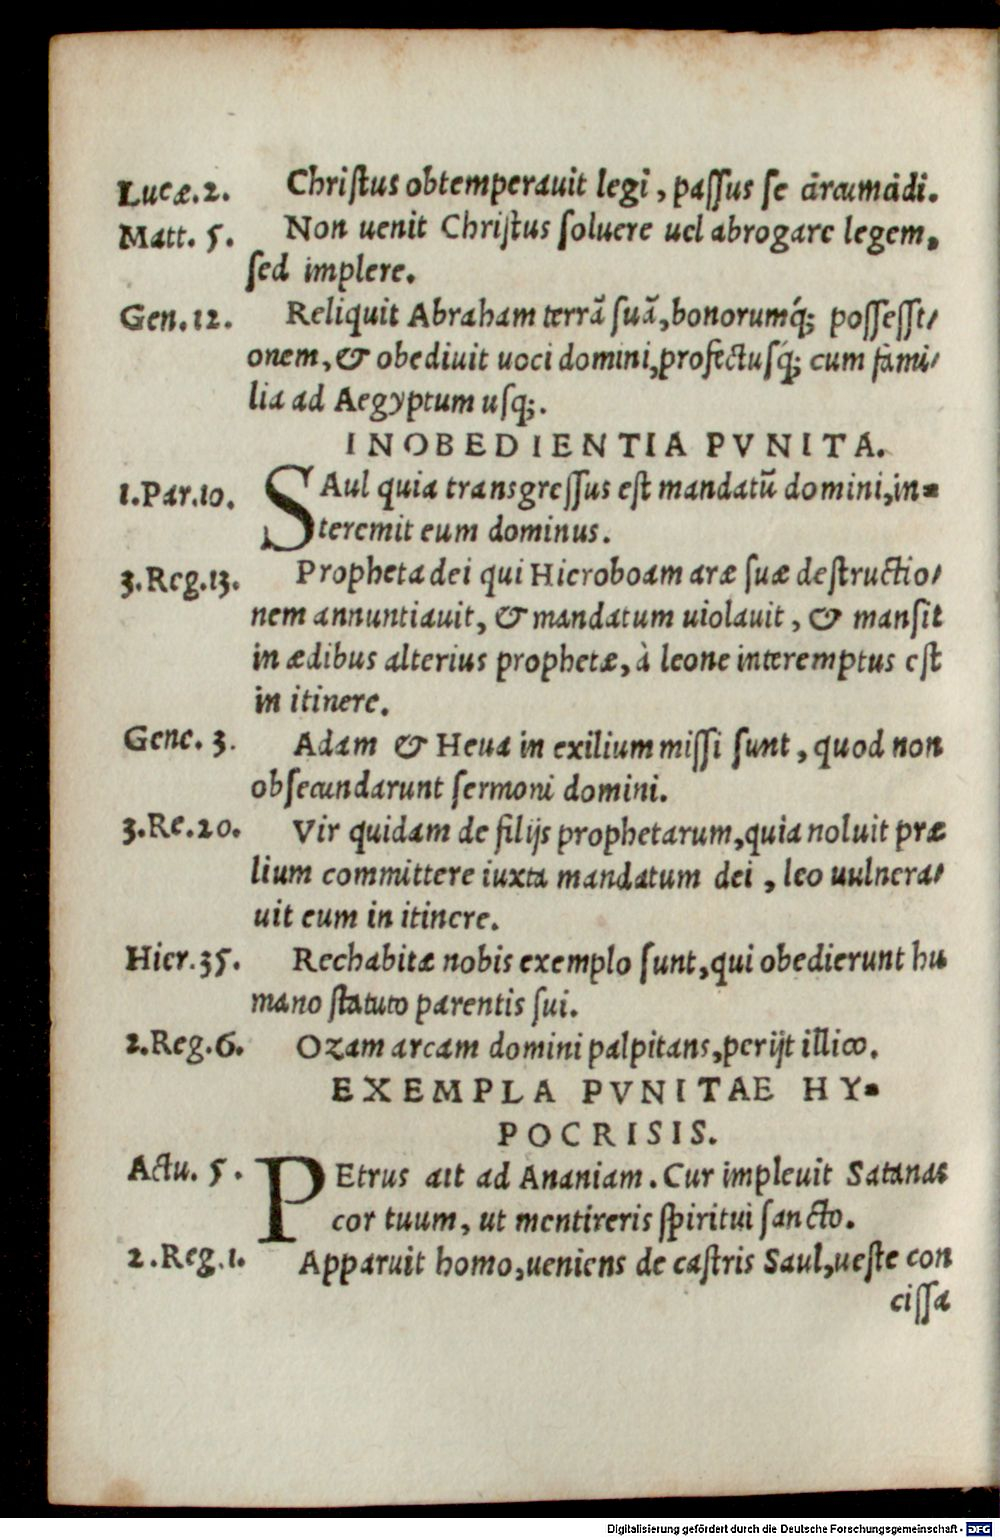 Lucæ.2. Chriſtus obtemperauit legi, paſſus ſe circumcidi.
Matt. 5. Non uenit Chriſtus ſoluere uel abrogare legem,
ſed implere.
Gen.12. Reliquit Abraham terrã ſuã, bonorumq́; poſſeſſi/
onem, & obediuit uoci domini, profectuſq́; cum fami/
lia ad Aegyptum uſq;.
INOBEDIENTIA PVNITA.
1.Par.10. SAul quia transgreſſus eſt mandatũ domini, in-
teremit eum dominus.
3.Reg.13. Propheta dei qui Hieroboam aræ ſuæ deſtructio/
nem annuntiauit, & mandatum uiolauit, & manſit
in ædibus alterius prophetæ, à leone interemptus eſt
in itinere.
Gene. 3. Adam & Heua in exilium miſſi ſunt, quod non
obſecundarunt ſermoni domini.
3.Re.20. Vir quidam de filijs prophetarum, quia noluit præ
lium committere iuxta mandatum dei, leo uulnera/
uit eum in itinere.
Hier.35. Rechabitæ nobis exemplo ſunt, qui obedierunt hu
mano ſtatuto parentis ſui.
2.Reg.6. Ozam arcam domini palpitans, perijt illico.
EXEMPLA PVNITAE HY-
POCRISIS.
Actu. 5. PEtrus ait ad Ananiam. Cur impleuit Satanas
cor tuum, ut mentireris ſpiritui ſancto.
2.Reg.1. Apparuit homo, ueniens de caſtris Saul, ueſte con
ciſſa
Digitalisierung gefördert durch die Deutsche Forschungsgemeinschaft - DFG